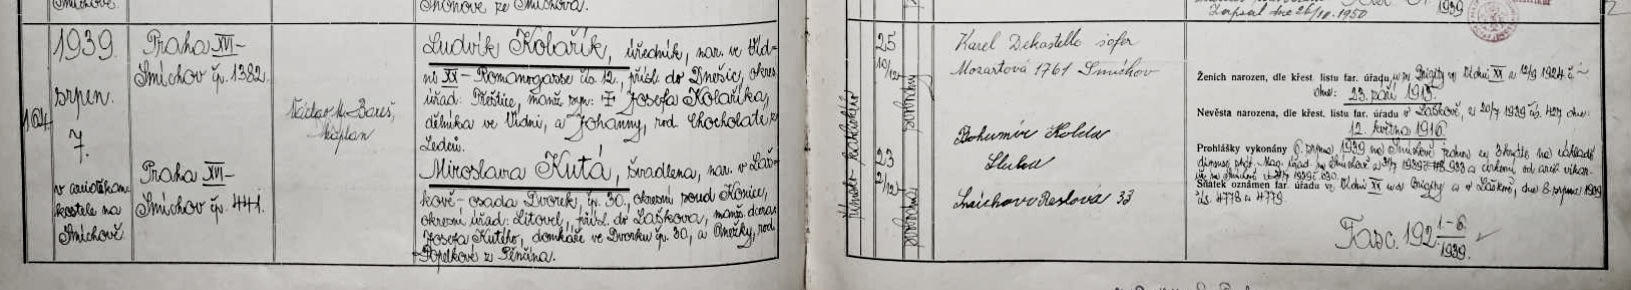 Smíchově.
Nonove ze Smíchova.
1939.
srpen.
7.
v
kostele na
Smíchově
Praha XVI-
Smíchov čp. 1382.
Praha XVI-
Smíchov čp. 441.
Václav M. Bareš,
kaplan
Ludvík Kolařík, úředník, nar. ve Víd-
ni XX – Romanogasse čís. 12., přísl. do Dnešic, okres.
úřad. Přeštice, manž. syn: Josefa Kolaříka,
dělníka ve Vídni, a Johanny, rod. Chocholaté z
Miroslava Kutá, švadlena, nar. v Laš-
kově – osada Dvorek, čp. 30., okresní soud Konice,
okresní úřad: Litovel, přísl. do Laškova, manž. dcera
Josefa Kutého, domkáře ve Dvorku čp. 30, a Anežky, rod.
Popelkové z Pěnčína.
25
10/12
23
2/12
římsko-katolické
svobodný
svobodná
Karel Dekastello šofer
Mozartová 1761 Smíchov
Bohumír Kolda
Sluha
Resslová 33
Zapsal dne 26/
1950
1939
Ženich narozen, dle křest. listu far. úřadu u sv. Brigity ve Vídni XX z 12/9 1924 č. –
dne: 23. září 1913.
Nevěsta narozena, dle křest. listu far. úřadu v Laškově, z 20/7 1939 čís. 427 dne:
12. května 1916.
Prohlášky vykonány 6. srpna 1939 na Smíchově
Sňatek oznámen far. úřadu ve Vídni XX u sv. Brigity a v Laškově, dne 8. srpna 1939
čís. 4778 a 4779
Fasc. 192 1–6.
1939.